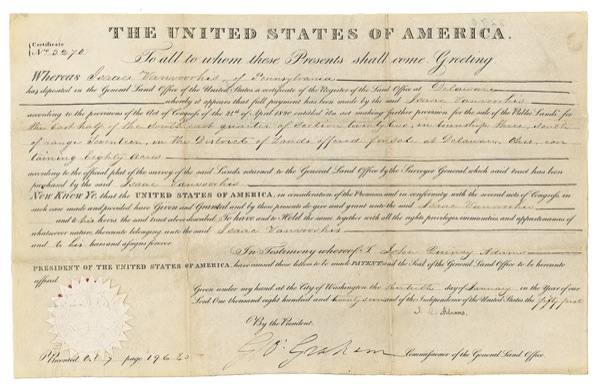 THE UNITED STATES OF AMERICA.
Certificate
No. 3270
To all to whom these Presents shall come, Greeting
Whereas Isaac Vanvoorhis of Pennsylvania
has deposited in the General Land Office of the United States a certificate of the Register of the Land Office at Delaware
whereby it appears that full payment has been made by the said Isaac Vanvoorhis
according to the provisions of the Act of Congress of the 24th of April 1820 entitled An act making further provision for the sale of the Public Lands for
the East half of the South east quarter of Section twenty two, in township three, South
of range Seventeen, in the District of Lands offered for sale at Delaware, Ohio, con
taining Eighty acres
according to the official plat of the survey of the said Lands returned to the General Land Office by the Surveyor General which said tract has been
purchased by the said Isaac Vanvoorhis
NOW KNOW YE, that the UNITED STATES OF AMERICA, in consideration of the Premises and in conformity with the several acts of Congress in
such case made and provided have Given and Granted and by these presents do give and grant unto the said Isaac Vanvoorhis
and to his heirs the said tract above described. To have and to Hold the same together with all the rights privileges immunities and appurtenances of
whatsoever nature, thereunto belonging unto the said Isaac Vanvoorhis
and to his heirs and assigns forever.
In Testimony whereof I, John Quincy Adams
PRESIDENT OF THE UNITED STATES OF AMERICA, have caused these letters to be made PATENT and the Seal of the General Land Office to be hereunto
affixed
Given under my hand at the City of Washington the day of January in the Year of our
Lord One thousand eight hundred and twenty seven and of the Independence of the United States the fifty first
J. Q. Adams.
By the President.
Geo: Graham Commissioner of the General Land Office.
Recorded Vol 7 page 196